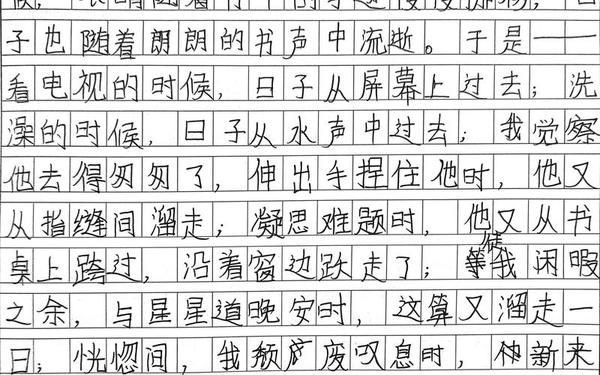 子也随着朗朗的书声中流逝。于是——
看电视的时候，日子从屏幕上过去；洗
澡的时候，日子从水声中过去；我觉察
他去得匆匆了，伸出手捏住他时，他又
从指缝间溜走；凝思难题时，他又从书
桌上跨过，沿着窗边跌走了；等我闲暇
之余，与星星道晚安时，这算又溜走一
日；恍惚间，我颓废叹息时，新来